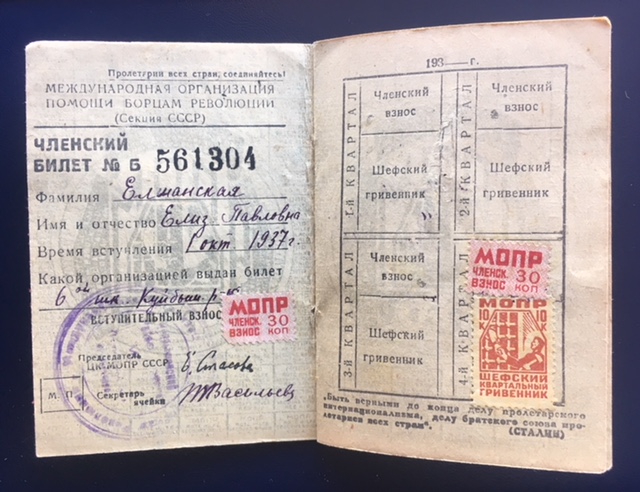 Пролетарии всех стран, соединяйтесь!
МЕЖДУНАРОДНАЯ ОРГАНИЗАЦИЯ
ПОМОЩИ БОРЦАМ РЕВОЛЮЦИИ
(Секция СССР)
ЧЛЕНСКИЙ
БИЛЕТ № Б 561304
Фамилия Елшанская
Имя и отчество Елиз Павловна
Время вступления 1 окт. 1937 г.
Какой организацией выдан билет
6 ой шк. Куйбыш. р-
ВСТУПИТЕЛЬНЫЙ ВЗНОС
МОПР
ЧЛЕНСК. 30
ВЗНОС КОП
Председатель
ЦК МОПР СССР Е. Стасова
М. П.
Секретарь
ячейки Васильев
193 — г.
1-й КВАРТАЛ
Членский
взнос
Шефский
гривенник
2-й КВАРТАЛ
Членский
взнос
Шефский
гривенник
3-й КВАРТАЛ
Членский
взнос
Шефский
гривенник
4-й КВАРТАЛ
МОПР
ЧЛЕНСК. 30
ВЗНОС КОП
МОПР
10 К 10 К
ШЕФСКИЙ
КВАРТАЛЬНЫЙ
ГРИВЕННИК
„Быть верными до конца делу пролетарского
интернационализма, делу братского союза про-
летариев всех стран".
(СТАЛИН)